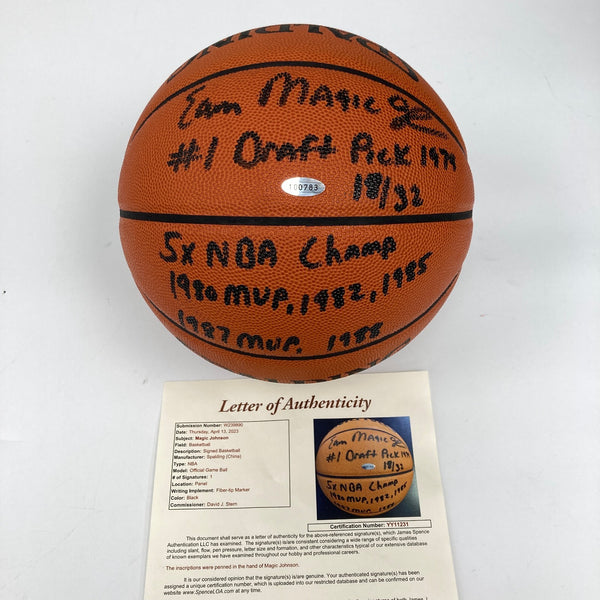 SPALDING
Earvin MAGIC J
#1 Draft Pick 1979
100763
18/32
5x NBA Champ
1980 MVP, 1982, 1985
1987 MVP, 1988
Letter of Authenticity
Submission Number: W239890
Date: Thursday, April 13, 2023
Subject: Magic Johnson
Field: Basketball
Description: Signed Basketball
Manufacturer: Spalding (China)
Type: NBA
Model: Official Game Ball
# of Signatures: 1
Location: Panel
Writing Implement: Fiber-tip Marker
Color: Black
Commissioner: David J. Stern
Earvin MAGIC J
#1 Draft Pick 1979
18/32
5x NBA Champ
1980 MVP, 1982, 1985
1987 MVP, 1988
Certification Number: YY11231
This document shall serve as a letter of authenticity for the above-referenced signature(s), which James Spence
Authentication LLC has examined. The signature(s) is/are consistent considering a wide range of specific qualities
including slant, flow, pen pressure, letter size and formation, and other characteristics typical of our extensive database
of known exemplars we have examined throughout our hobby and professional careers.
The inscriptions were penned in the hand of Magic Johnson.
It is our considered opinion that the signature(s) is/are genuine. Your authenticated signature(s) has been
assigned a unique certification number, which is uploaded into our restricted database and can be confirmed on our
website www.SpenceLOA.com at any time.